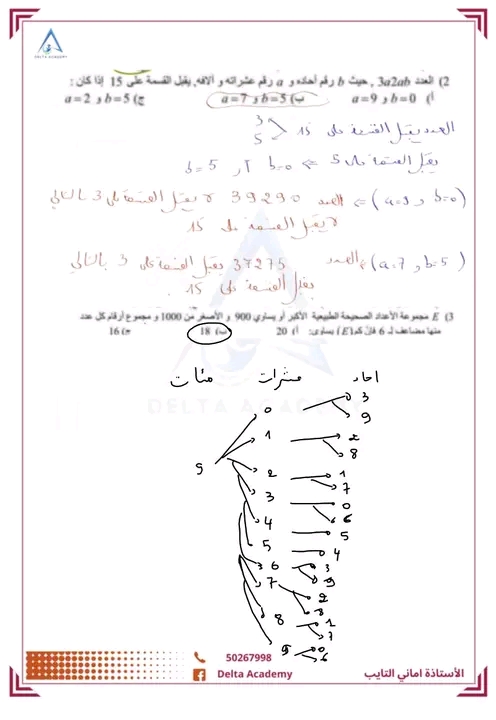 DELTA ACADEMY
2) العدد 3a2ab , حيث b رقم أحاده و a رقم عشراته و ألافه, يقبل القسمة على 15 إذا كان :
أ) b=0 و a=9 ب) b=5 و a=7 ج) b=5 و a=2
العدد يقبل القسمة على 15
3
5
يقبل القسمة على 5 ⇐ b=0 أو b=5
(a=9 و b=0) ⇐ العدد 39290 لا يقبل القسمة على 3 بالتالي
لا يقبل القسمة على 15
(a=7 و b=5) العدد 37275 يقبل القسمة على 3 بالتالي
يقبل القسمة على 15.
3) E مجموعة الأعداد الصحيحة الطبيعية الأكبر أو يساوي 900 و الأصغر من 1000 و مجموع أرقام كل عدد
منها مضاعف لـ 6 فإن كم(E) يساوي: أ) 20 ب) 18 ج) 16
احاد عشرات مئات
DELTA ACADEMY
9
0 3 9
1 2 8
2 1 7
3 0 6
4 5
5 4
6 3 9
7 2 8
8 1 7
9 0 6
50267998
Delta Academy
الأستاذة اماني التايب